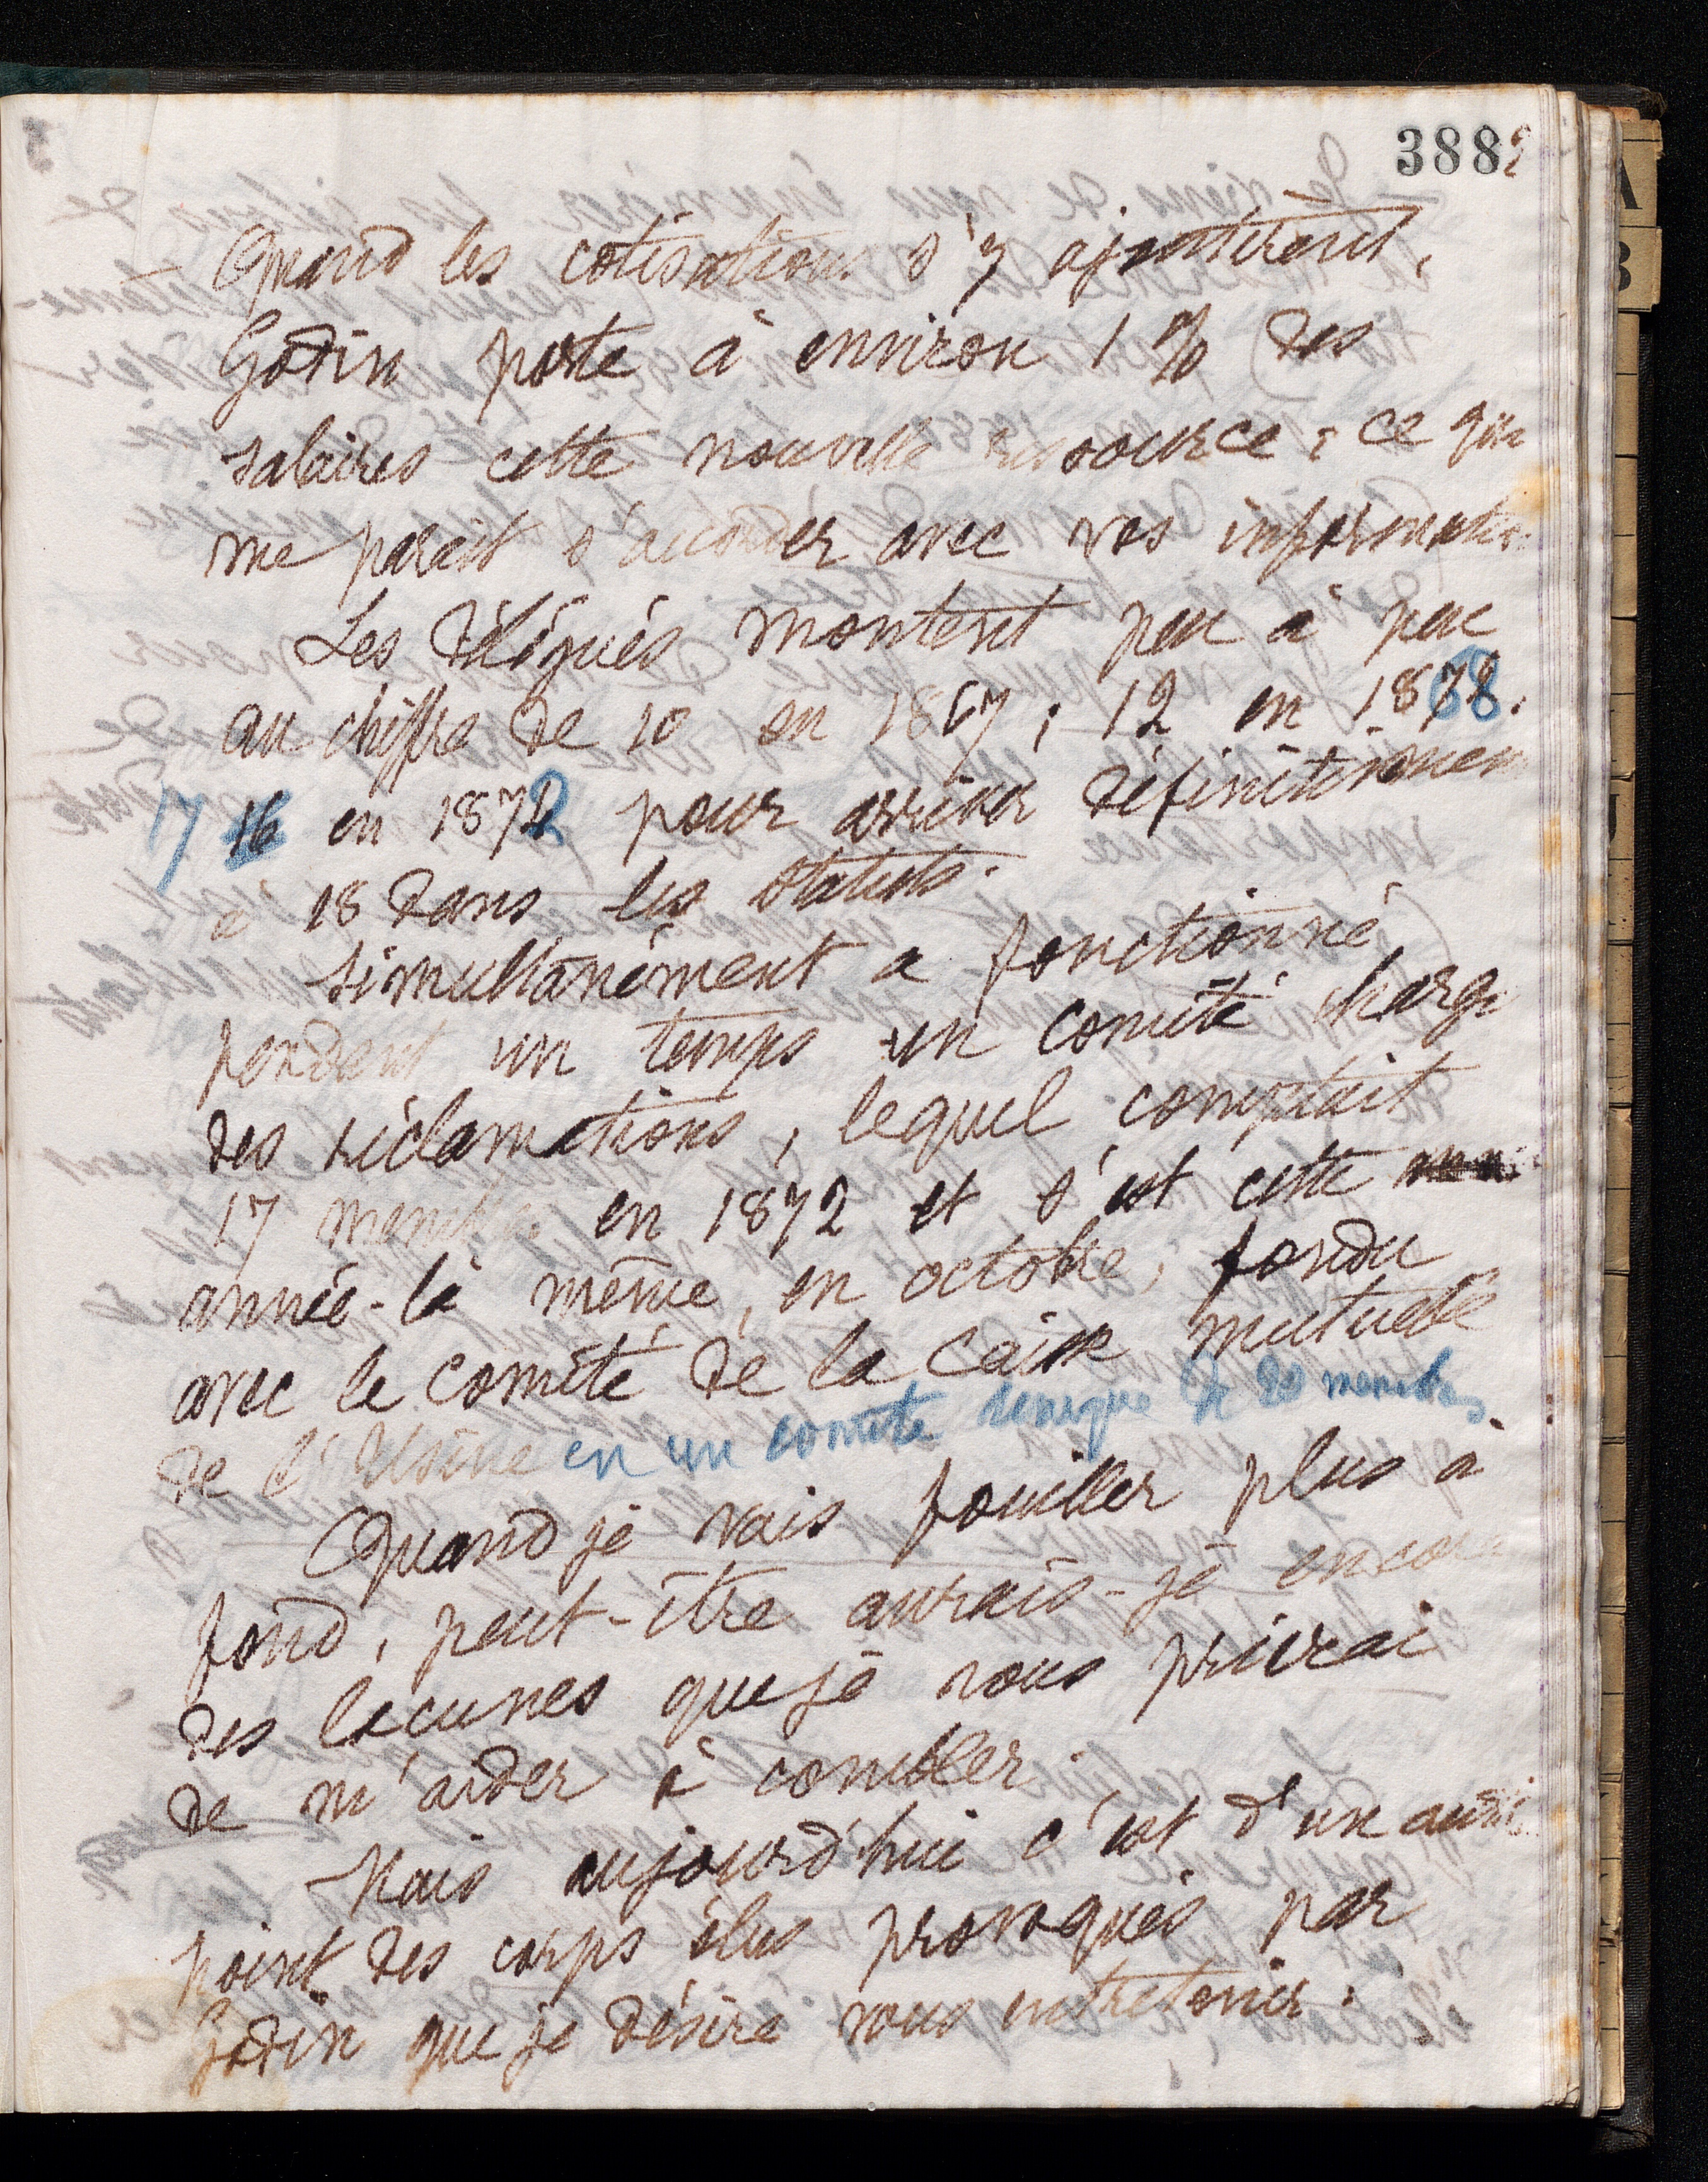 388
Quand les cotisations s'y ajoutèrent,
Godin porte à environ 1 % des
salaires cette nouvelle ressource ; ce qui
me paraît s'accorder avec vos informatio
Les délégués montent peu à peu
au chiffre de 10 en 1867 ; 12 en 1868.
17 16 en 1872 pour arriver définitivemen
à 18 dans les statuts.
Simultanément a fonctionné,
pendant un temps un comité chargé
des réclamations, lequel comptait
17 membres en 1872 et s'est cette
année-là même, en octobre, fondu
avec le Comité de la Caisse mutuelle
de l'Usine en un comité unique de 20 membres
Quand je vais fouiller plus à
fond, peut-être aurais-je encore
des lacunes que je vous prierai
de m'aider à combler.
Mais aujourd'hui c'est d'un autre
point des corps élus provoqués par
Godin que je désire vous entretenir.